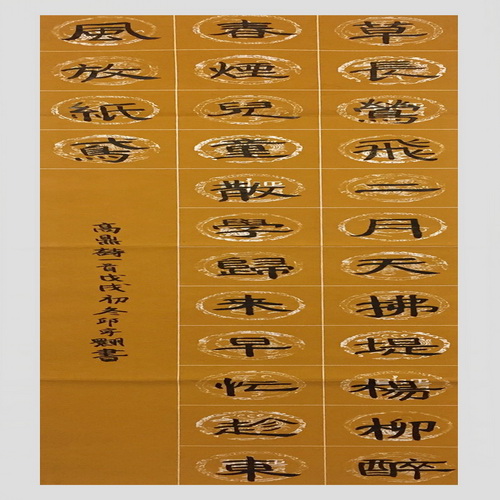 草長鶯飛二月天拂堤楊柳醉
春煙兒童散學歸來早忙趁東
風放紙鳶
高鼎詩一首戊戌初冬邱子書